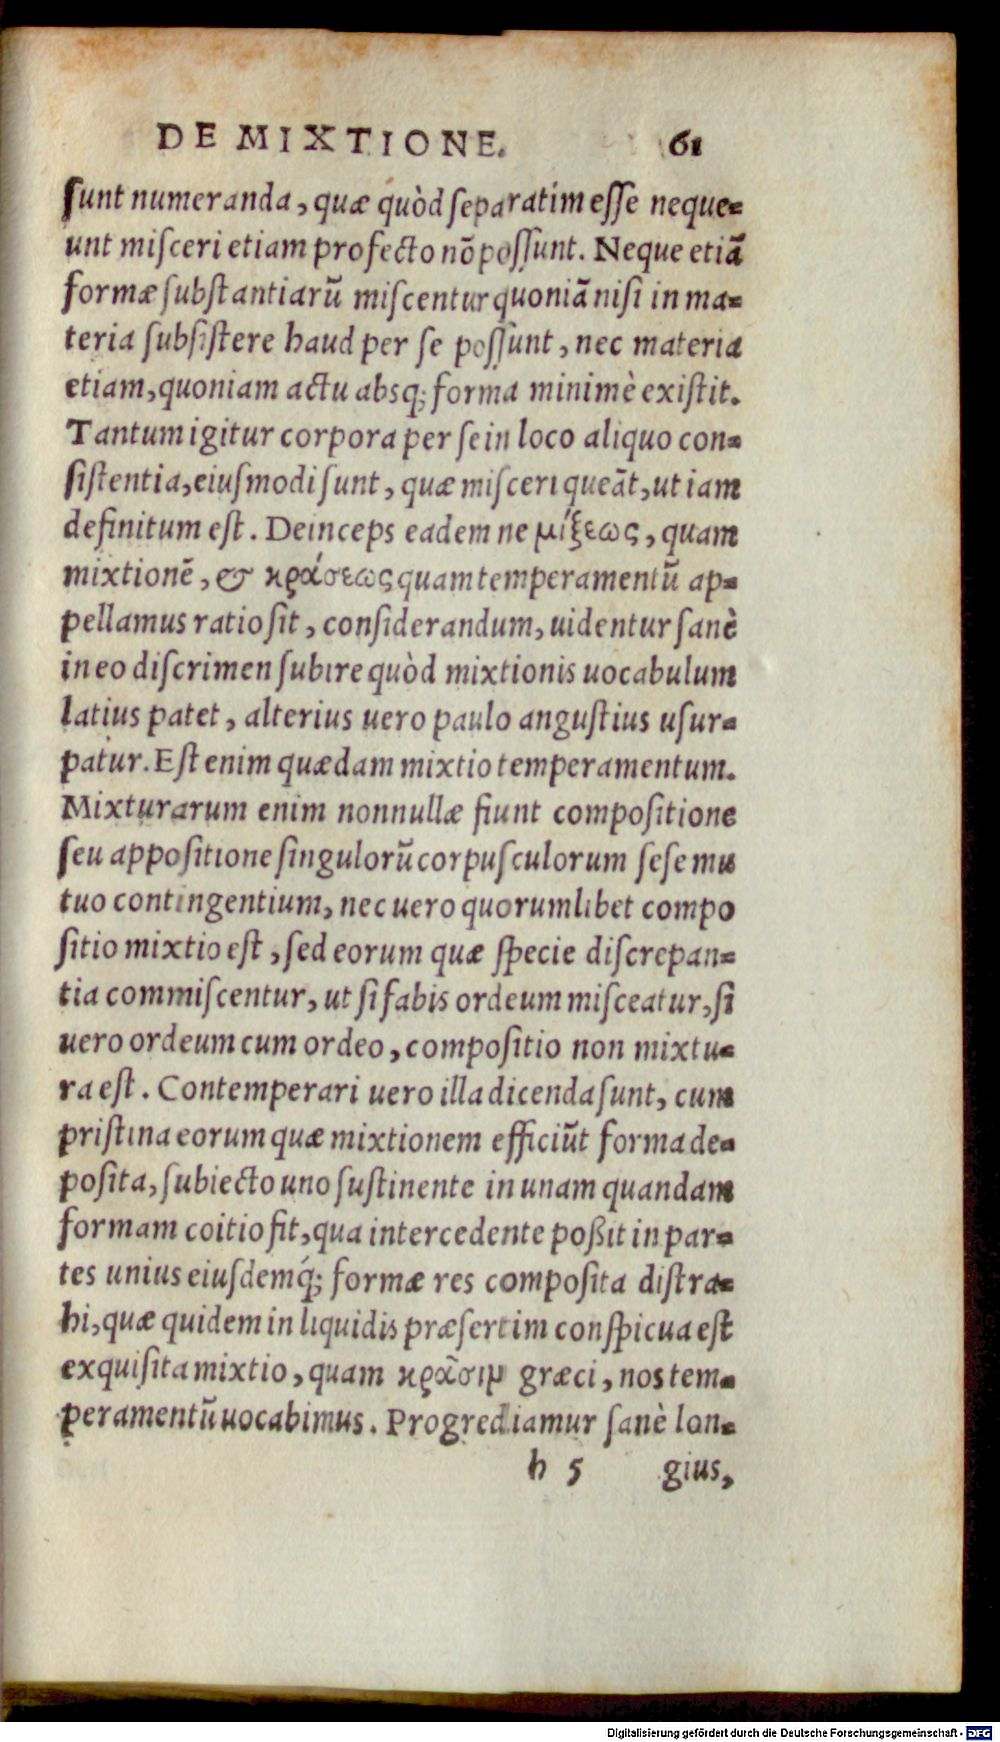 DE MIXTIONE. 61
sunt numeranda, quæ quòd separatim esse neque-
unt misceri etiam profecto nõ possunt. Neque etiã
formæ substantiarũ miscentur quoniã nisi in ma-
teria subsistere haud per se possunt, nec materia
etiam, quoniam actu absq; forma minimè existit.
Tantum igitur corpora per se in loco aliquo con-
sistentia, eiusmodi sunt, quæ misceri queãt, ut iam
definitum est. Deinceps eadem ne μίξεως, quam
mixtionẽ, & κράσεως quam temperamentũ ap-
pellamus ratio sit, considerandum, uidentur sanè
in eo discrimen subire quòd mixtionis uocabulum
latius patet, alterius uero paulo angustius usur-
patur. Est enim quædam mixtio temperamentum.
Mixturarum enim nonnullæ fiunt compositione
seu appositione singulorũ corpusculorum sese mu
tuo contingentium, nec uero quorumlibet compo
sitio mixtio est, sed eorum quæ specie discrepan-
tia commiscentur, ut si fabis ordeum misceatur, si
uero ordeum cum ordeo, compositio non mixtu-
ra est. Contemperari uero illa dicenda sunt, cum
pristina eorum quæ mixtionem efficiũt forma de-
posita, subiecto uno sustinente in unam quandam
formam coitio fit, qua intercedente poßit in par-
tes unius eiusdemq́; formæ res composita distra-
hi, quæ quidem in liquidis præsertim conspicua est
exquisita mixtio, quam κρᾶσιμ græci, nos tem-
peramentũ uocabimus. Progrediamur sanè lon-
h 5 gius,
Digitalisierung gefördert durch die Deutsche Forschungsgemeinschaft - DFG